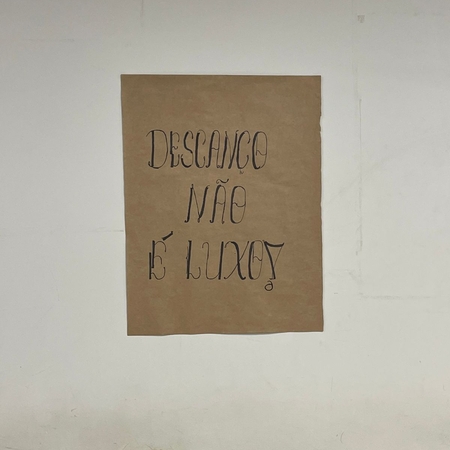 DESCANÇO
NÃO
É LUXO!